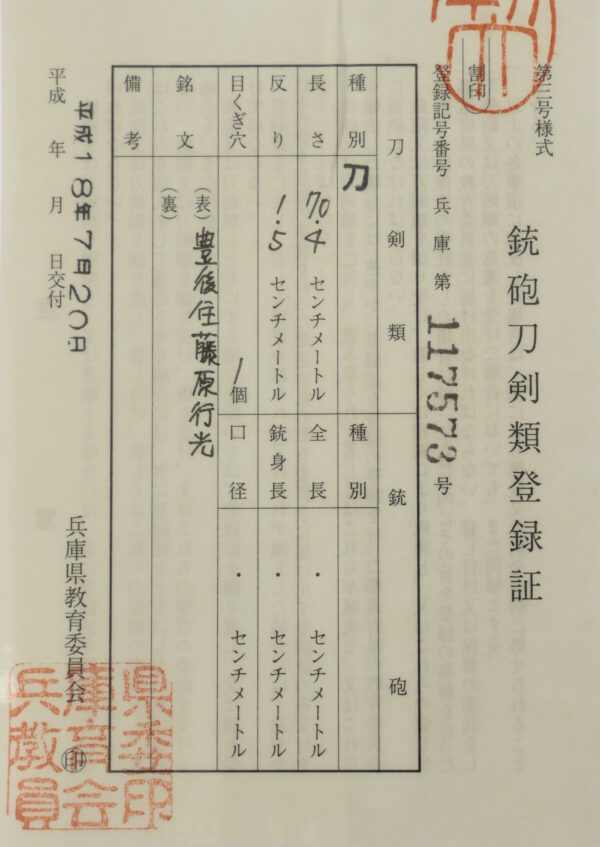 第三号様式
割印
銃砲刀剣類登録証
登録記号番号 兵庫 第 117573 号
刀剣類
銃砲
種別 刀
種別
長さ 70.4 センチメートル
全長 ・ センチメートル
反り 1.5 センチメートル
銃身長 ・ センチメートル
目くぎ穴 1個
口径 ・ センチメートル
銘文
(表) 豊後住藤原行光
(裏)
備考
平成 年 月 日交付
平成18年7月20日
兵庫県教育委員会 印
兵庫県教育委員会印